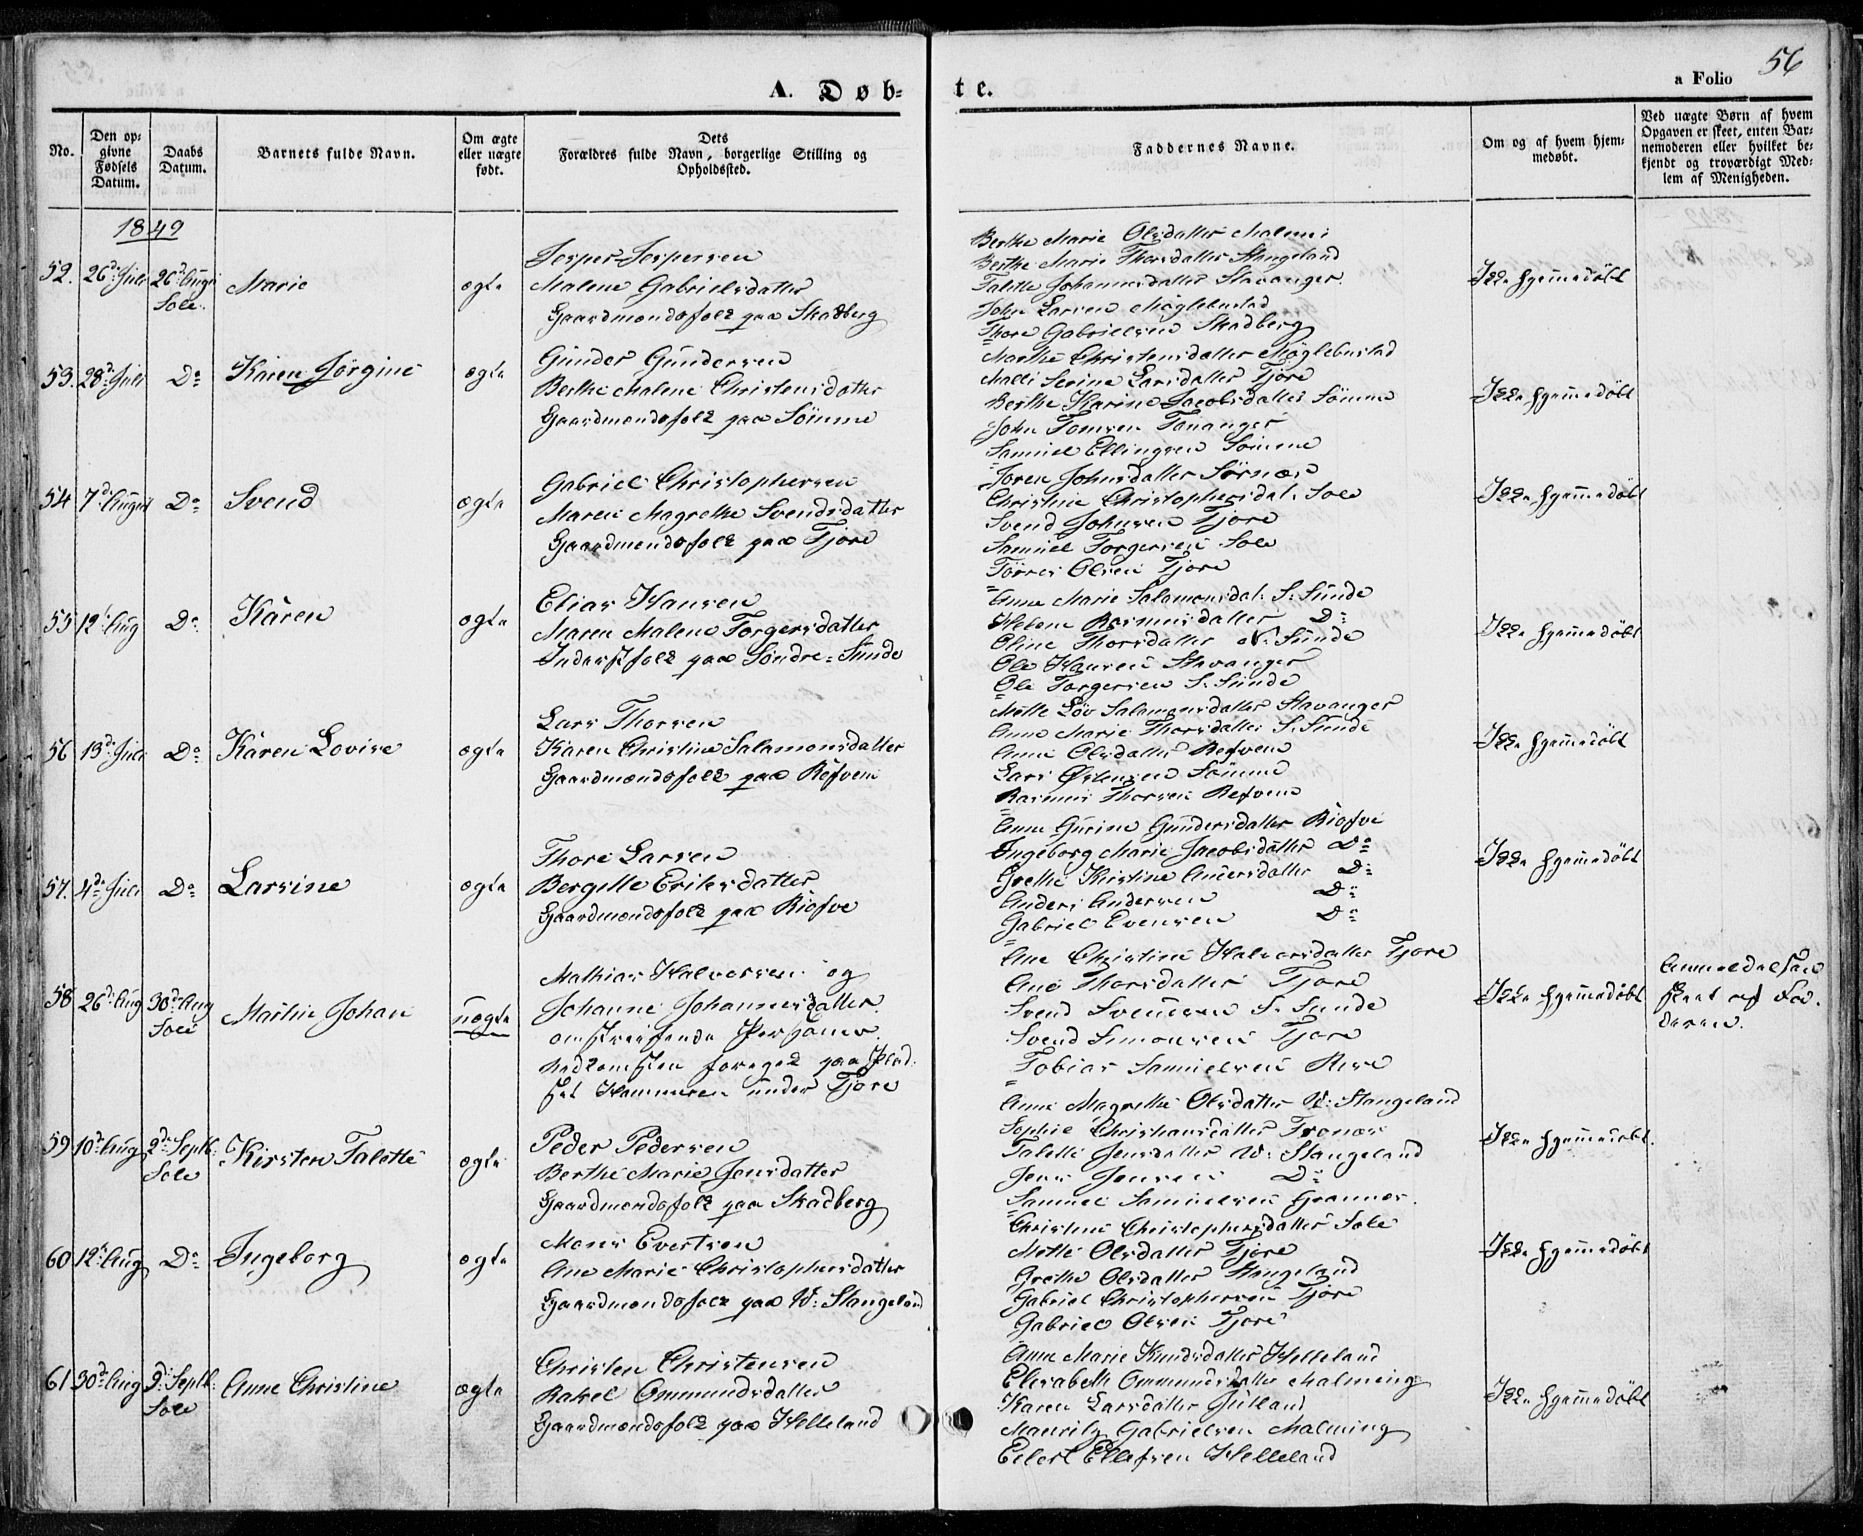 56
A. Døb-
te.
a Folio
No.
Den op-
givne
Fødsels
Datum.
Daabs
Datum.
Barnets fulde Navn.
Om ægte
eller uægte
født.
Dets
Forældres fulde Navn, borgerlige Stilling og
Opholdssted.
Faddernes Navne.
Om og af hvem hjem-
medøbt.
Ved uægte Børn af hvem
Opgaven er skeet, enten Bar-
nemoderen eller hvilket be-
kjendt og troværdigt Med-
lem af Menigheden.
1849
52. 26de Juli 26de Augu
Sole.
Marie
ægte
Jesper Jespersen
Malene Gabrielsdatter
Gaardmandsfolk paa Skadberg
Berthe Marie Olsdatter
Berthe Marie Thorsdatter Stangeland
Talette Johannesdatter Stavanger.
John Larsen Møglebustad
Thore Gabrielsen Skadberg
Ikke hjemmedøbt
53. 28de Juli Do
Karen Jörgine
ægte
Gunder Gundersen
Berthe Malene Christensdatter
Gaardmandsfolk paa Sömme
Marthe Christensdatter Møglebustad
Malli Serine Larsdatter Tjore
Berthe Karine Jacobsdatter Sömme
John Tomsen Tananger
Samuel Ellingsen Sömme
Ikke hjemmedøbt
54 7de August Do
Svend
ægte
Gabriel Christophersen
Maren Magrethe Svendsdatter
Gaardmandsfolk paa Tjore
Soren Johnsdatter Sörnæs
Christine Christophersdat. Sole
Svend Johnsen Tjore
Samuel Torgersen Sole
Törres Olsen Tjore
Ikke hjemmedøbt
55 12te Aug Do
Karen
ægte
Elias Hansen
Maren Malene Torgersdatter
Inderstfolk paa Söndre-Sunde
Anne Marie Salamonsdat. S. Sunde
Helene Rasmusdatter Do
Oline Thorsdatter N. Sunde
Ole Hansen Stavanger
Ole Torgersen S. Sunde
Ikke hjemmedøbt
56 13de Juli Do
Karen Lovise
ægte
Lars Thorsen
Karen Christine Salamonsdatter
Gaardmandsfolk paa Refvem
Mette Löv Salamonsdatter Stavanger
Anne Marie Thorsdatter S. Sunde
Anne Olsdatter Refvem
Lars Östensen Sömme
Rasmus Thorsen Refvem
Ikke hjemmedøbt
57. 4de Juli Do
Larsine
ægte
Thore Larsen
Bergitte Eriksdatter
Gaardmandsfolk paa Riofve
Anne Gurine Gundersdatter Riofve
Ingeborg Marie Jacobsdatter Do
Grethe Kirstine Andersdatter Do
Anders Andersen Do
Gabriel Evensen Do
Ikke hjemmedøbt
58 26de Aug 30de Aug
Sole
Martin Johan
uægte
Mathias Halversen og
Johanne Johannesdatter
omstreifende Personer.
Nedkomsten foregik paa Plad-
set Hammeren under Tjore
Ane Christine Halversdatter Tjore
Ane Thorsdatter Tjore
Svend Svensen S. Sunde
Svend Simonsen Tjore
Tobias Samuelsen Ræge
Ikke hjemmedøbt
Anmeldelsen
skeet af Fa-
deren.
59 10de Aug 2de Septb.
Sole
Kirsten Talette
ægte
Peder Pedersen
Berthe Marie Jensdatter
Gaardmandsfolk paa Skadberg
Anne Magrethe Olsdatter V. Stangeland
Sophie Christiansdatter
Talette Jensdatter V. Stangeland
Jens Jensen Do
Samuel Samuelsen Grannes.
Ikke hjemmedøbt.
60 12te Aug Do
Ingeborg
ægte
Mons Evertsen
Ane Marie Christophersdatter
Gaardmandsfolk paa V. Stangeland
Christine Christophersdatter Sole
Mette Olsdatter Tjore
Grethe Olsdatter Stangeland
Gabriel Christophersen Tjore
Gabriel Olsen Tjore
Ikke hjemmedøbt
61 30de Aug 9de Septb.
Sole
Anne Christine
ægte
Christen Christensen
Rakel Ommundsdatter
Gaardmandsfolk paa Helleland
Anne Marie Knudsdatter Helleland
Elisabeth Ommundsdatter Malming
Karen Larsdatter Jütland
Mauritz Gabrielsen Malming
Eilert Ellefsen Helleland
Ikke hjemmedøbt